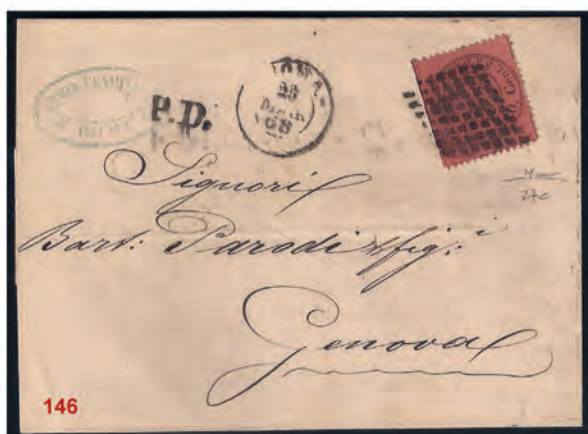 P.D.
23
68
Cent.
Signori
Bart: Parodi & fig:i
Genova
27c
146